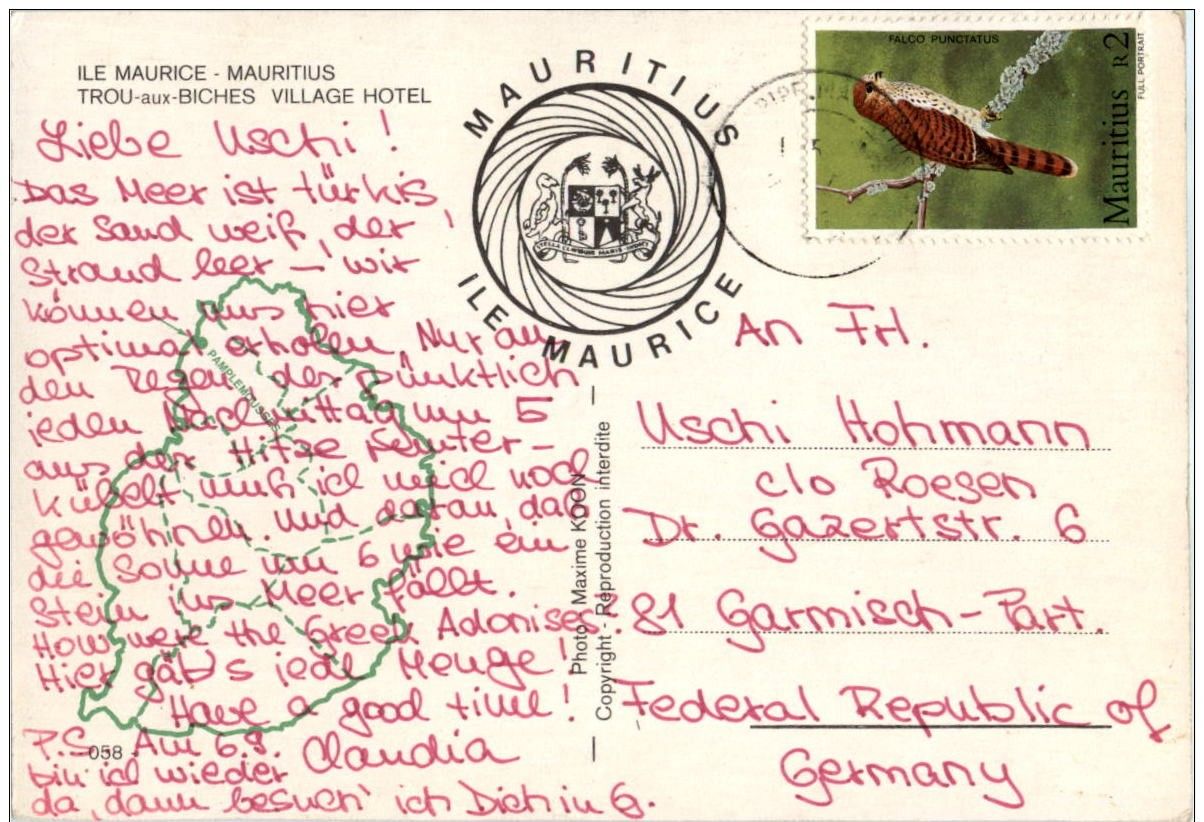 ILE MAURICE - MAURITIUS
TROU-aux-BICHES VILLAGE HOTEL
MAURITIUS
ILE MAURICE
STELLA CLAVISQUE MARIS INDICI
FALCO PUNCTATUS
Mauritius R2
FULL PORTRAIT
Liebe Uschi!
Das Meer ist türkis,
der Sand weiß, der
Strand leer – wir
können uns hier
optimal erholen. Nur an
den Regen der pünktlich
jeden Nachmittag um 5
aus der Hitze runter-
kübelt muß ich mich noch
gewöhnen. Und daran, daß
die Sonne um 6 wie ein
Stein ins Meer fällt.
How were the Greek Adonises?
Hier gäb's jede Menge!
Have a good time!
Claudia
P.S. Am 6.9.
bin ich wieder
da, dann besuch' ich Dich in G.
PAMPLEMOUSSES
058
Photo Maxime KOON
Copyright - Reproduction interdite
An Frl.
Uschi Hohmann
c/o Roesen
Dr. Gazertstr. 6
81 Garmisch-Part.
Federal Republic of
Germany